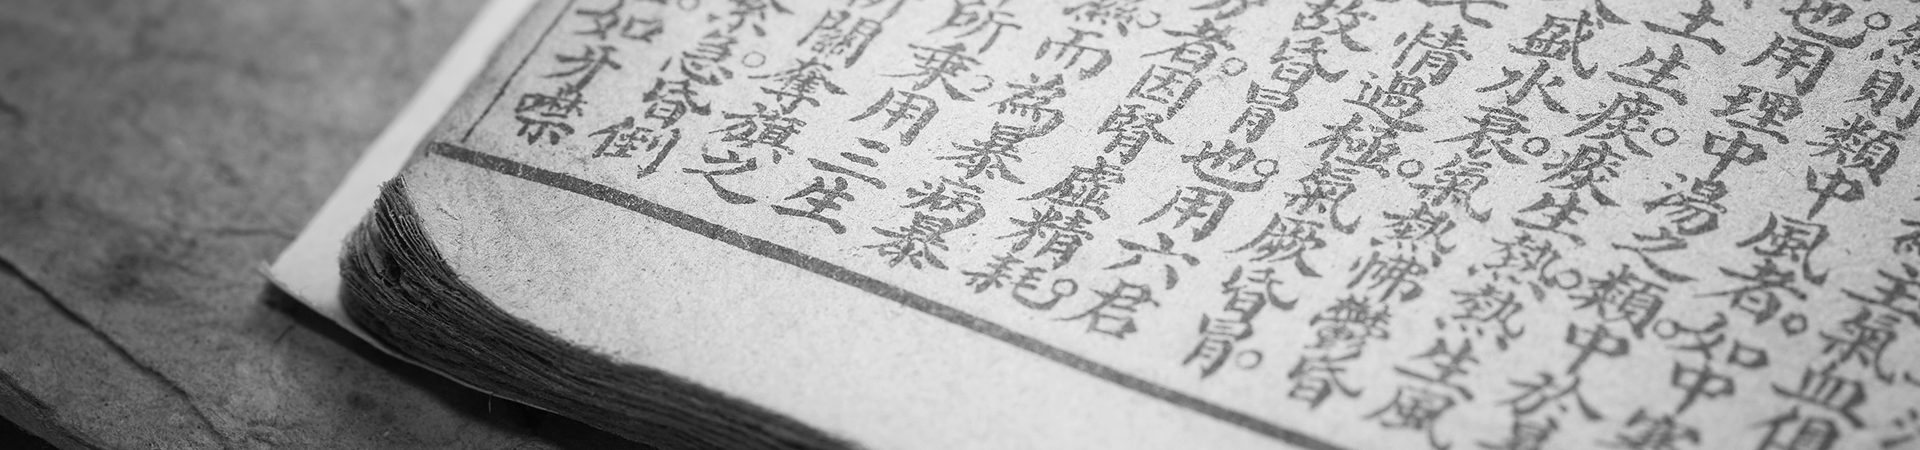 主氣血俱
則類中風者。如中寒
也。用理中湯之類。中於
土生痰。痰生熱。熱生風
盛水衰。氣熱怫鬱昏
七情過極。氣厥昏冒。
故昏冒也。用六君
者。因腎虛精耗。
而為暴病暴
所乘。用三生
關奪旗之
緊急。昏倒
如牙噤